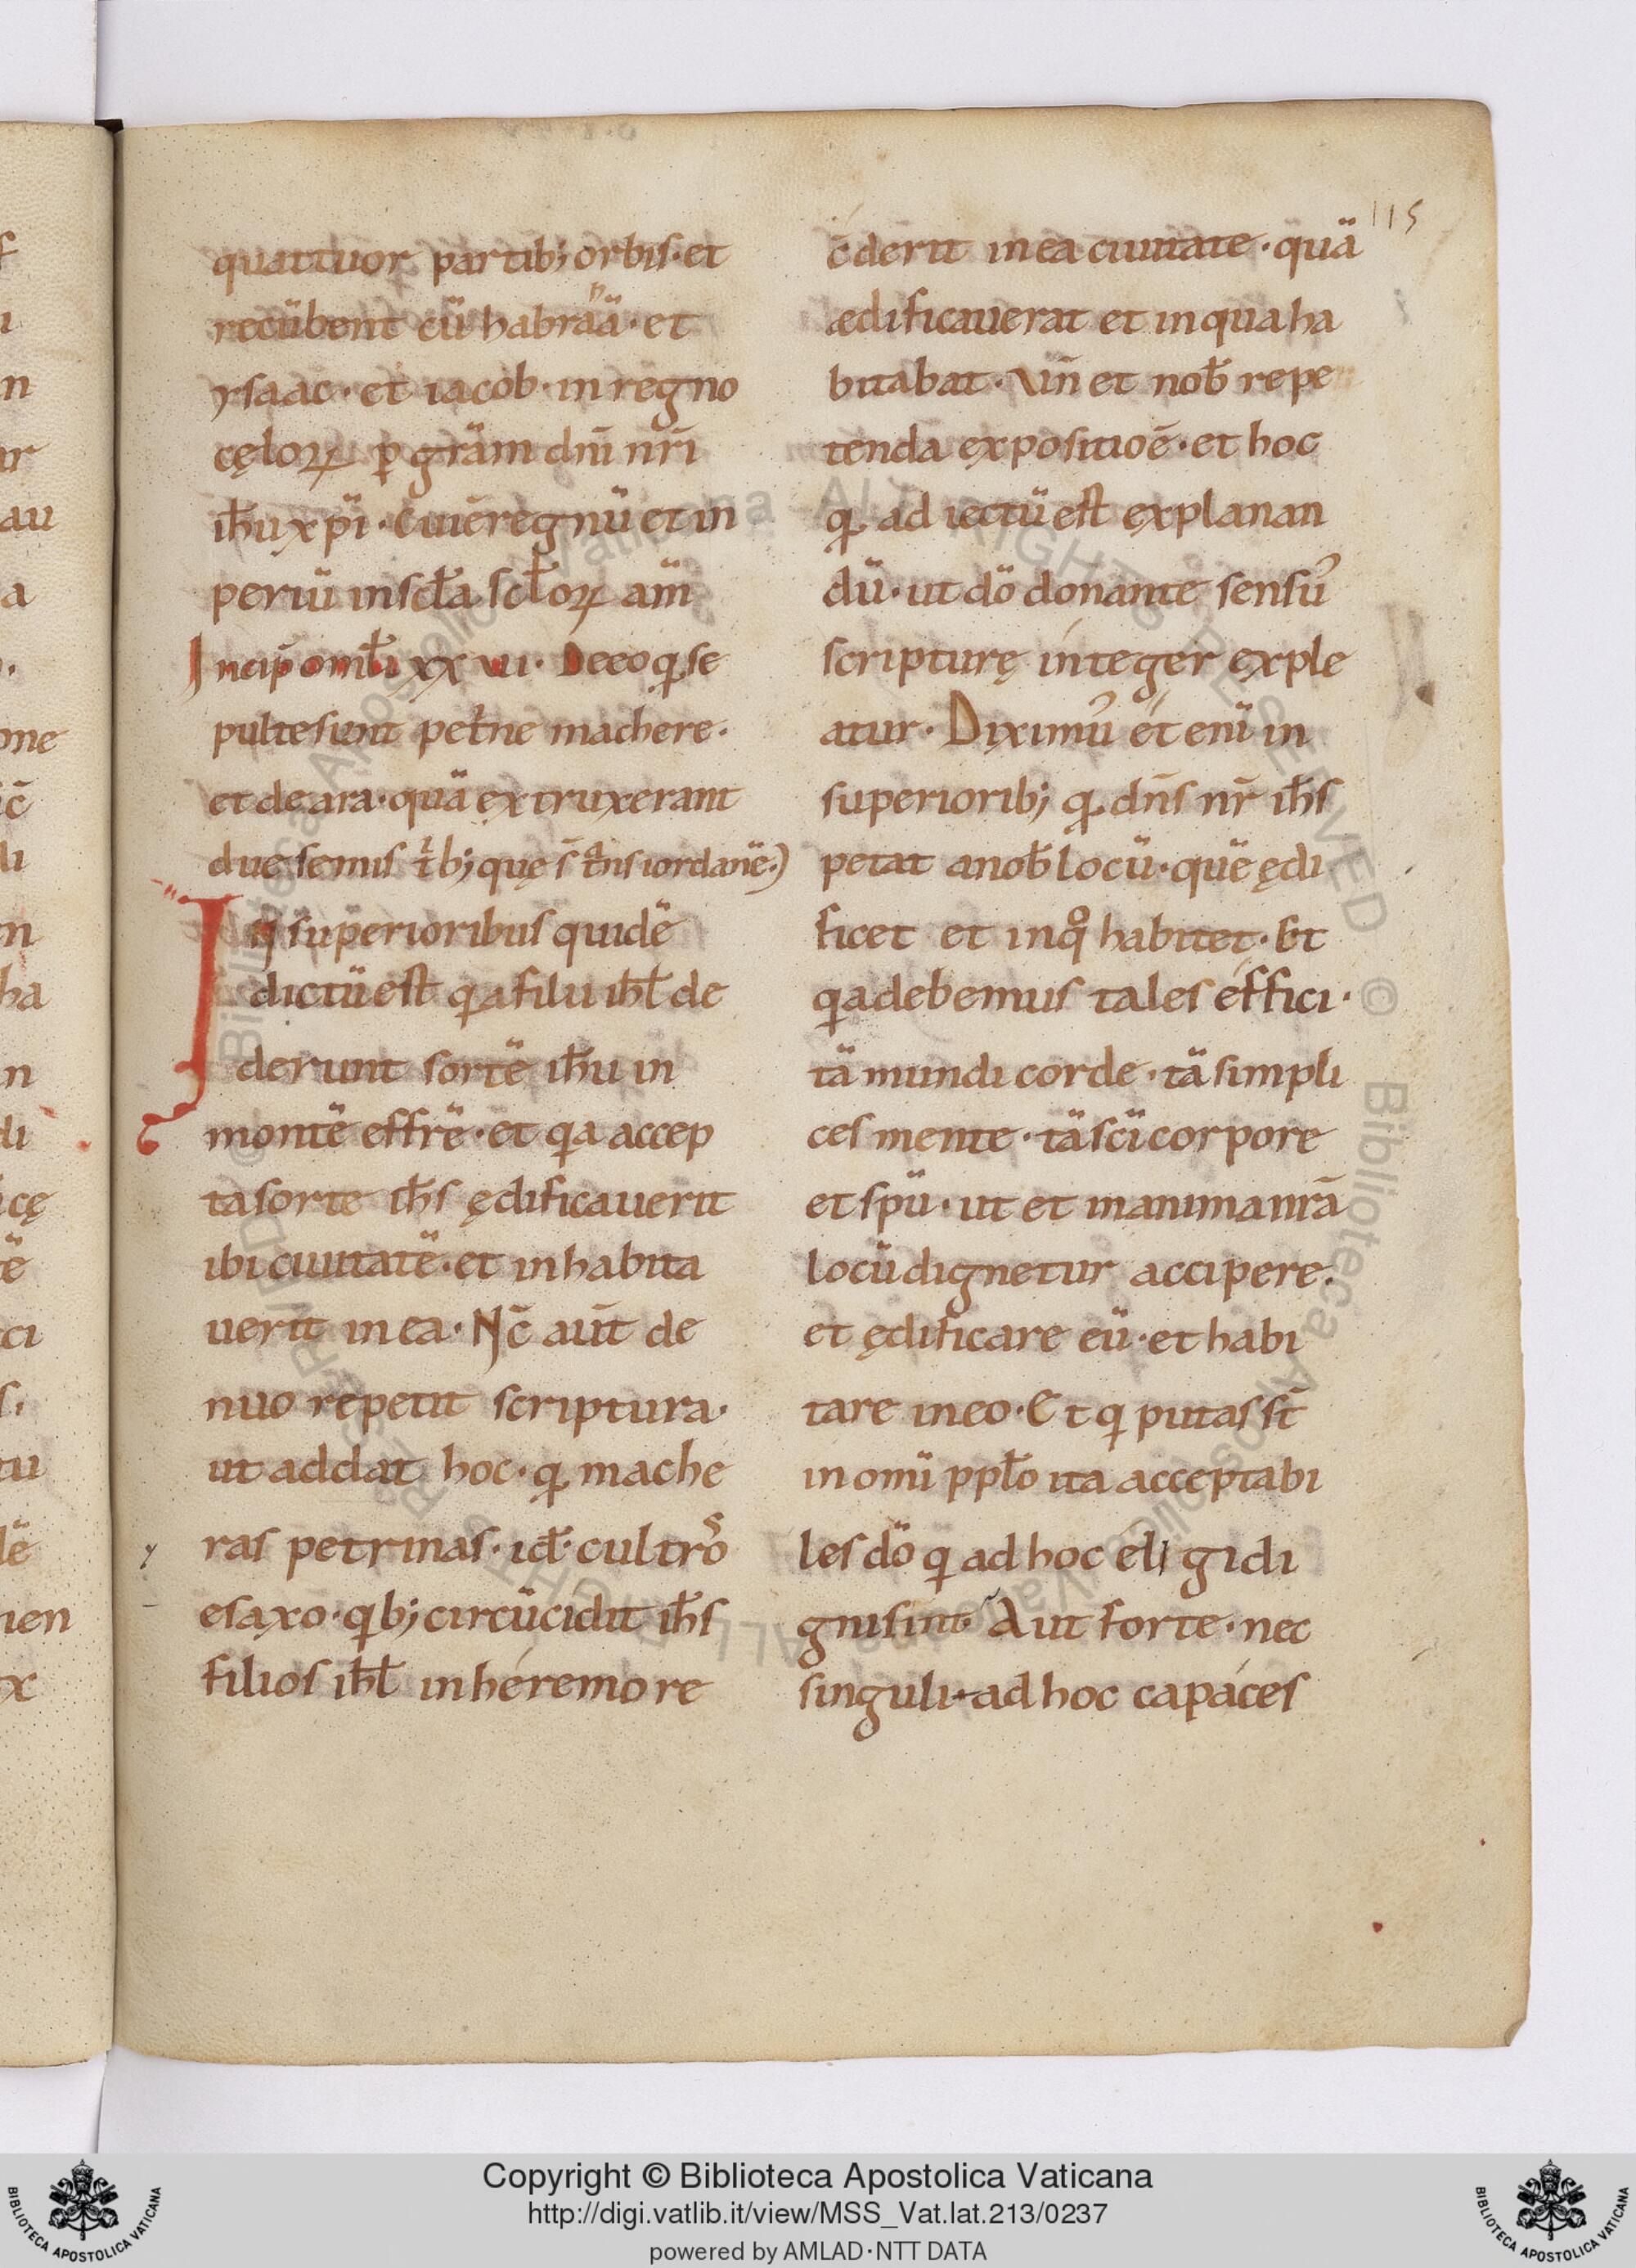 115
quattuor partib; orbis · et
recūbent cū habraā · et
h
ysaac · et iacob · in regno
cęloꝝ ꝑ grām dn̄i nr̄i
ih̄u xp̄i · cui ē regnū et in
periū in scl̄a scl̄oꝝ am̄
Incip̄ omel̄i xxvii · De eo qđ se
pulte sunt petrine machere ·
et de ara · quā extruxerant
due semis trib; quę s̄ trans iordanē ·
Iɴ superioribus quidē
dictū est qa filii ihl̄ de
derunt sortē ih̄u in
montē effrē · et qa accep
ta sorte ih̄s ędificauerit
ibi ciuitatē · et inhabita
uerit in ea · Nc̄ aut̄ de
nuo repetit scriptura ·
ut addat hoc · qđ mache
ras petrinas · id · cultros
e saxo · qb; circūcidit ih̄s
filios ihl̄ in heremo re
c̄derit in ea ciuitate · quā
ædificauerat et in qua ha
bitabat · Vn̄ et nob̄ repe
tenda expositioē · et hoc
qđ adiectū est explanan
dū · ut dō donante sensus
scripturę integer exple
atur · Diximus et enī in
superiorib; qđ dn̄s nr̄ ih̄s
petat a nob̄ locū · quē ędi
ficet et in qͦ habitet · Et
qa debemus tales effici ·
tā mundi corde · tā simpli
ces mente · tā sc̄i corpore
et sp̄u · ut et in anima nr̄a
locū dignetur accipere ·
et ędificare eū · et habi
tare in eo · Et qi putas st̄
in omī ppl̄o ita acceptabi
les dō qi ad hoc eligi di
gni sint · Aut forte · nec
singuli · ad hoc capaces
Biblioteca Apostolica Vaticana ALL RIGHTS RESERVED © Biblioteca Apostolica Vaticana ALL RIGHTS RESERVED ©
Copyright © Biblioteca Apostolica Vaticana
http://digi.vatlib.it/view/MSS_Vat.lat.213/0237
powered by AMLAD·NTT DATA
BIBLIOTECA APOSTOLICA VATICANA
BIBLIOTECA APOSTOLICA VATICANA